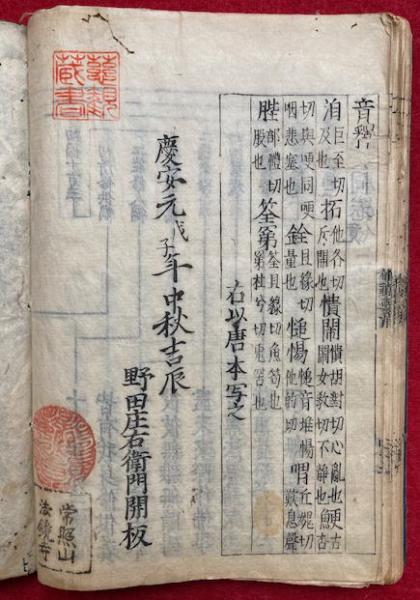 音釋
洎巨至切及也拓他各切斥開也憒閙憒胡對切心亂也閙女教切不靜也鯁古杏
切與哽同哽咽悲塞也銓且縁切量也惕音堆惕他的切喟丘媿切歎息聲
䏶部禮切股也筌第筌且縁切魚笱也第杜兮切兎罟也
右以唐本写之
慶安元戊子年中秋吉辰
野田庄右衛門開板
藏書
常照山
法鏡寺